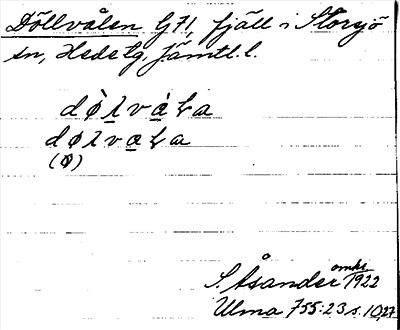 Döllvålen G71, fjäll i Storsjö
sn, Hede tg, Jämtl. l.
dø̀lvàɫa
dølvaɫa
(ø)
omkr
S. Åsander 1922
Ulma 755:23 s. 10, 27